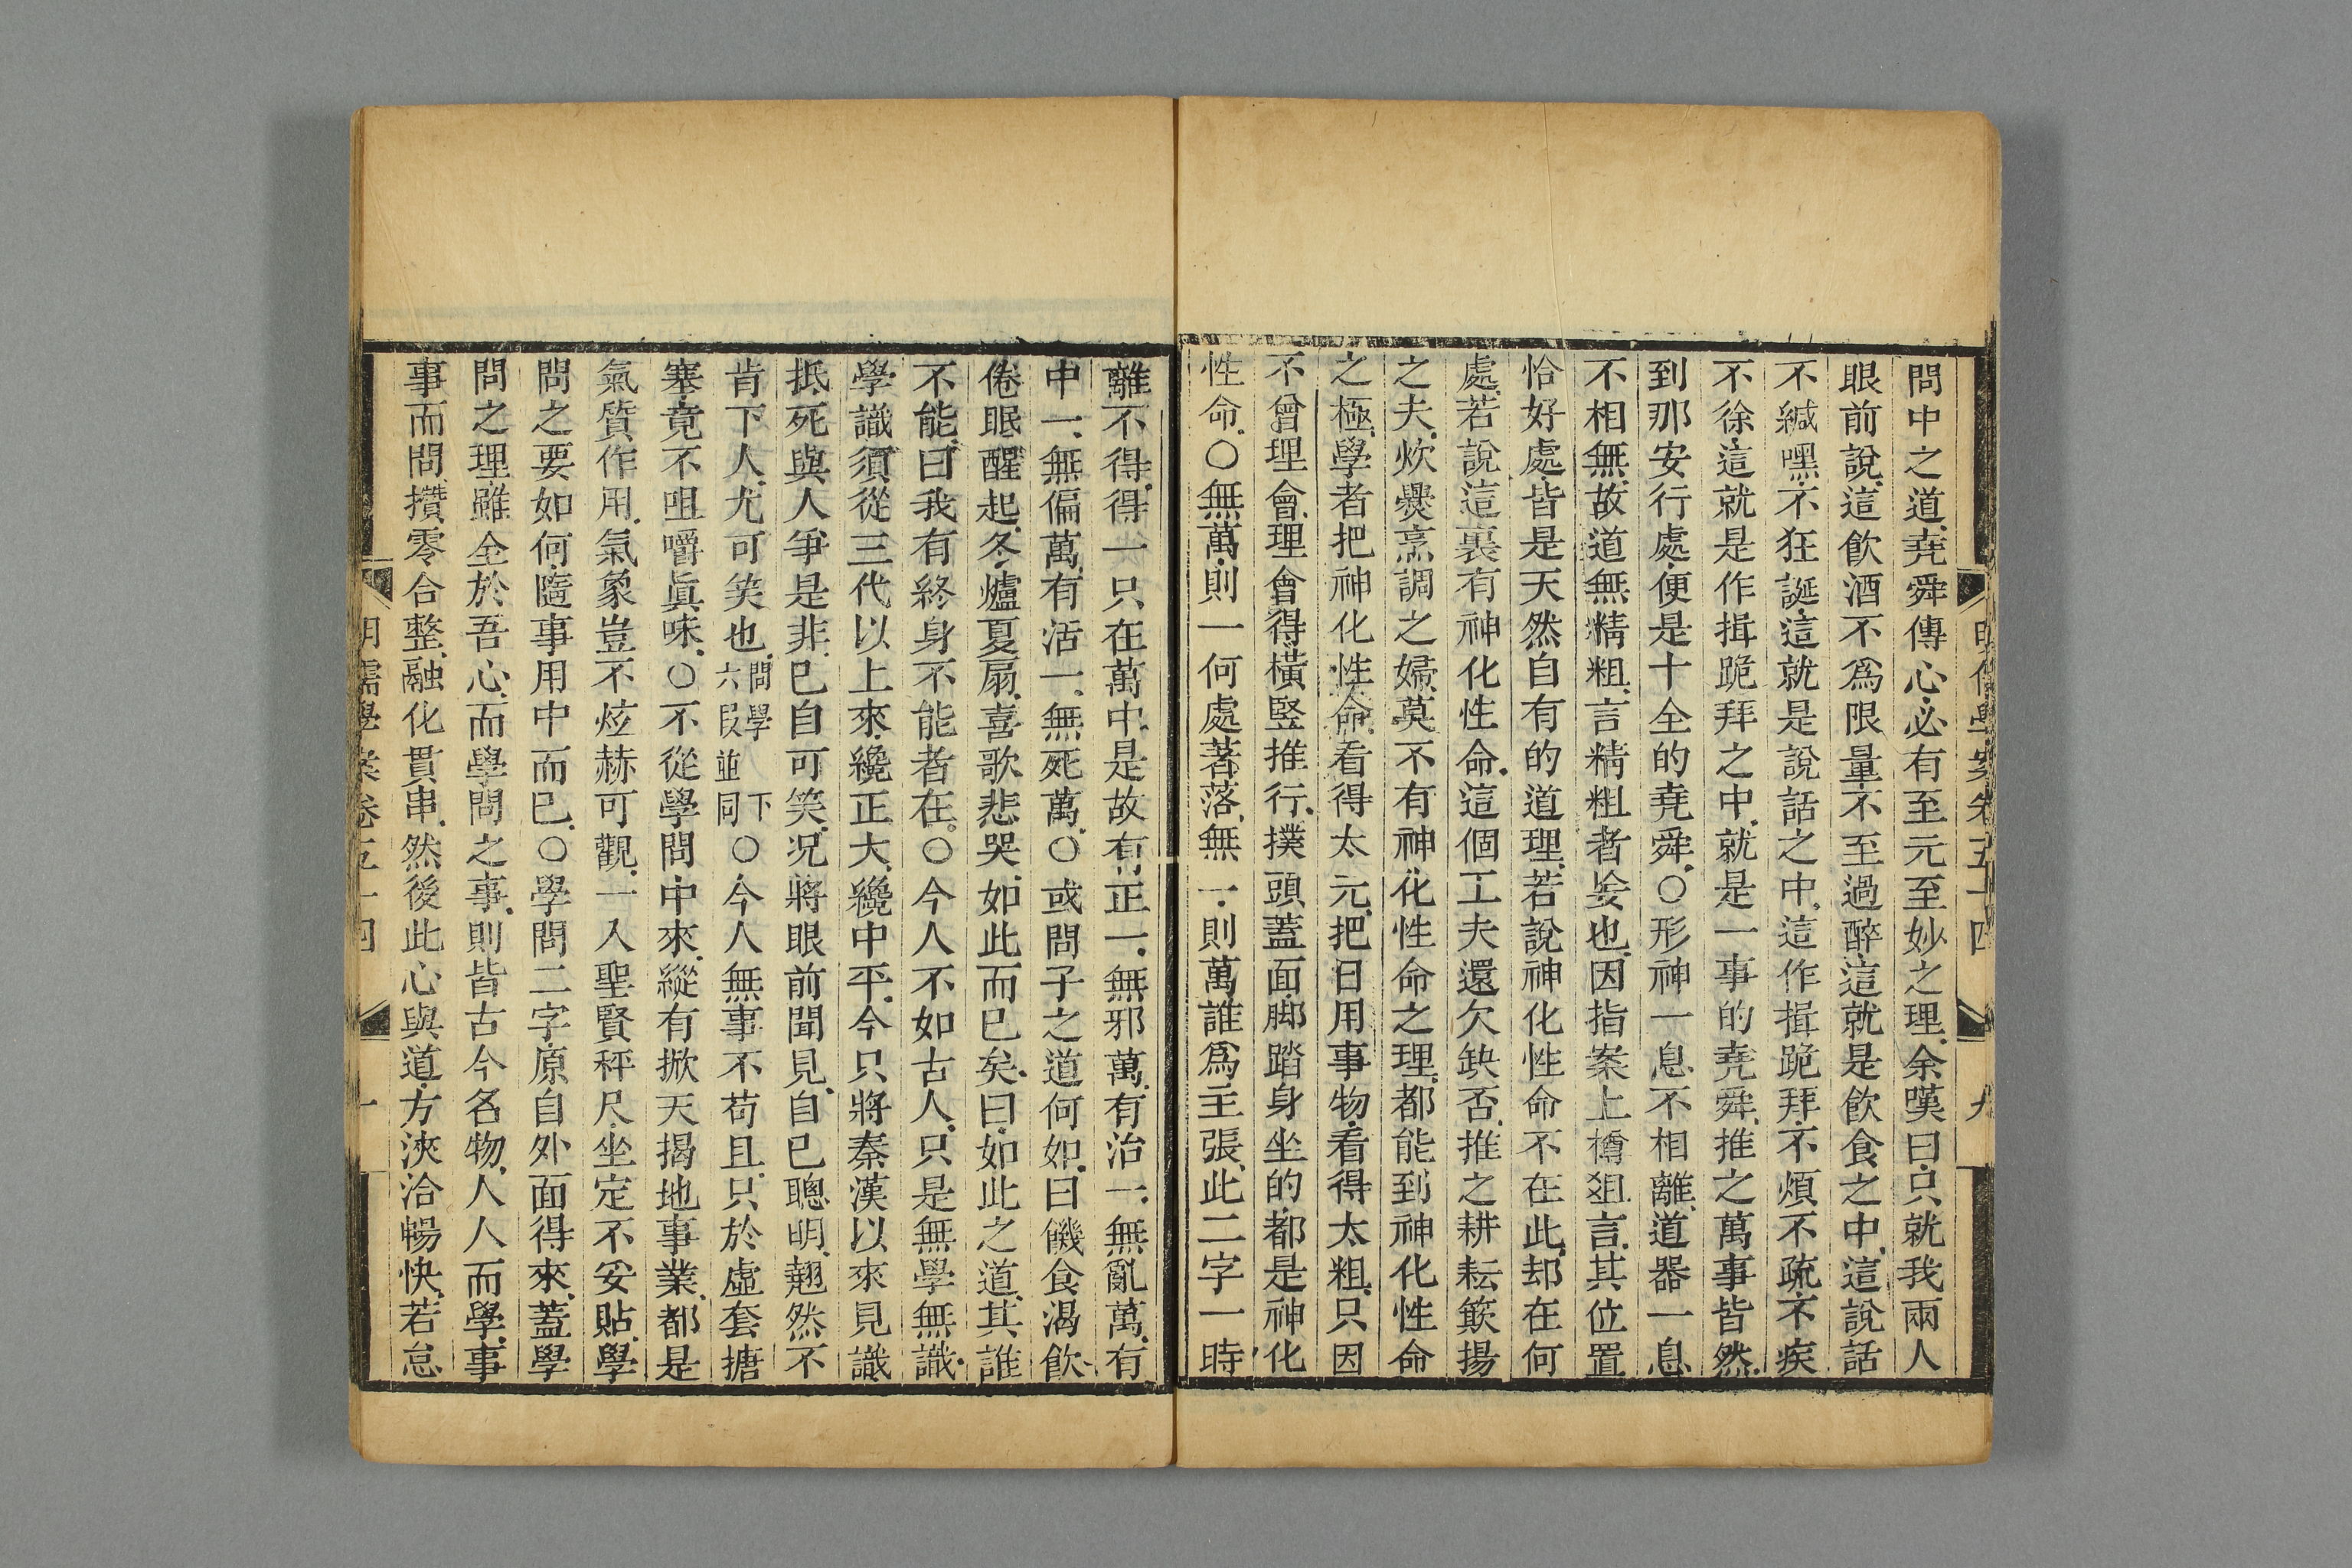 問中之道堯舜傳心必有至元至妙之理余嘆曰只就我兩人
眼前說這飲酒不爲限量不至過醉這就是飲食之中這說話
不緘嘿不狂誕這就是說話之中這作揖跪拜不煩不疏不疾
不徐這就是作揖跪拜之中就是一事的堯舜推之萬事皆然
到那安行處便是十全的堯舜○形神一息不相離道器一息
不相無故道無精粗言精粗者妄也因指案上樽俎言其位置
恰好處皆是天然自有的道理若說神化性命不在此却在何
處若說這裏有神化性命這個工夫還欠缺否推之耕耘簸揚
之夫炊爨烹調之婦莫不有神化性命之理都能到神化性命
之極學者把神化性命看得太元把日用事物看得太粗只因
不曾理會理會得橫竪推行撲頭蓋面脚踏身坐的都是神化
性命○無萬則一何處著落無一則萬誰爲主張此二字一時
離不得得一只在萬中是故有正一無邪萬有治一無亂萬有
中一無偏萬有活一無死萬○或問子之道何如曰饑食渴飲
倦眠醒起冬爐夏扇喜歌悲哭如此而已矣曰如此之道其誰
不能曰我有終身不能者在○今人不如古人只是無學無識
學識須從三代以上來纔正大纔中平今只將秦漢以來見識
抵死與人爭是非已自可笑况將眼前聞見自已聰明翹然不
肯下人尤可笑也問學下六段並同○今人無事不苟且只於虛套搪
塞竟不咀嚼眞味○不從學問中來縱有掀天揭地事業都是
氣質作用氣象豈不炫赫可觀一入聖賢秤尺坐定不妥貼學
問之要如何隨事用中而已○學問二字原自外面得來蓋學
問之理雖全於吾心而學問之事則皆古今名物人人而學事
事而問攢零合整融化貫串然後此心與道方浹洽暢快若怠
明儒學案卷五十四